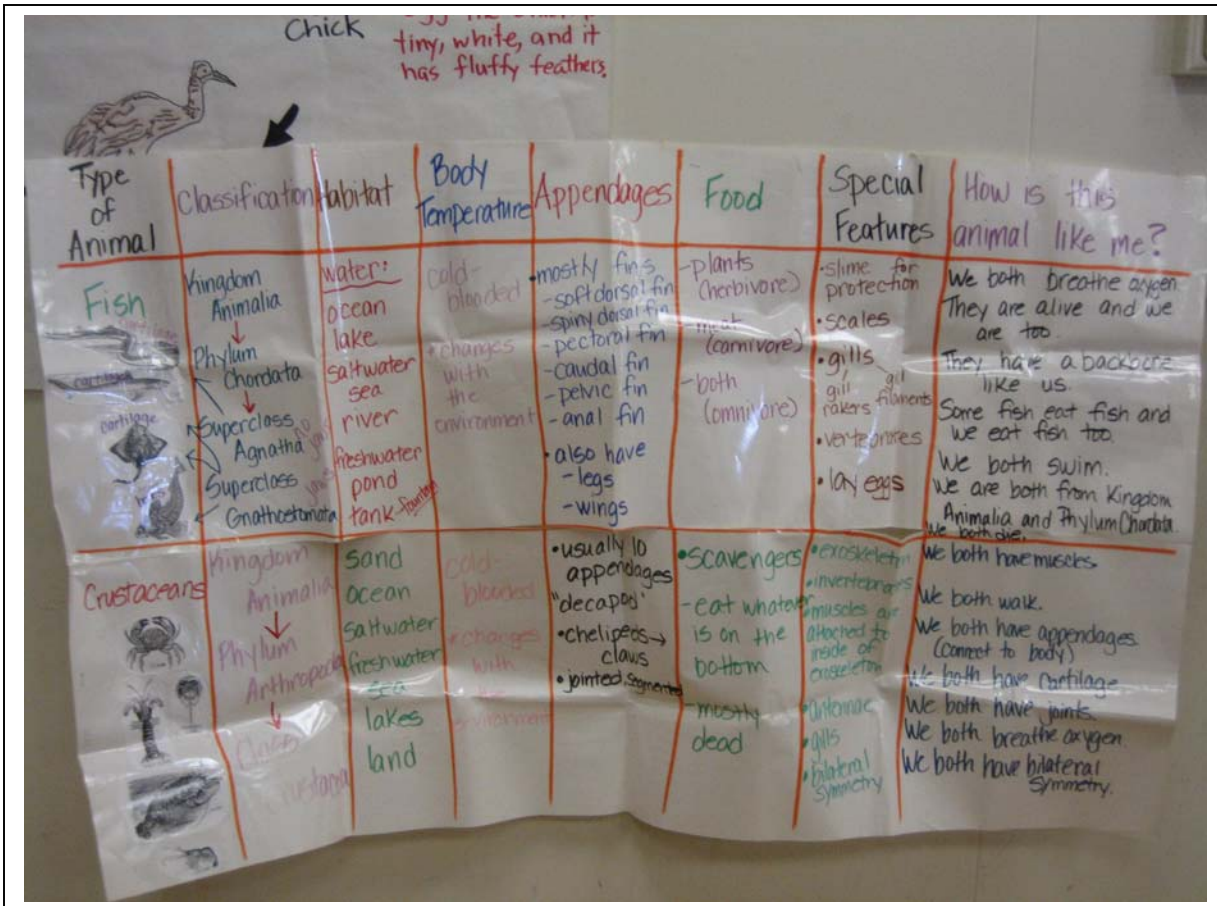 Chick
tiny, white, and it
has fluffy feathers.
Type
of
Animal
Classification
Habitat
Body
Temperature
Appendages
Food
Special
Features
How is this
animal like me?
Fish
cartilage
cartilage
Kingdom
Animalia
Phylum
Chordata
Superclass
Agnatha
no
jaws
Superclass
jaws
Gnathostomata
water:
ocean
lake
saltwater
sea
river
freshwater
pond
tank
cold-
blooded
•changes
with
the
environment
•mostly fins
-soft dorsal fin
-spiny dorsal fin
-pectoral fin
-caudal fin
-pelvic fin
-anal fin
•also have
-legs
-wings
-plants
(herbivore)
-meat
(carnivore)
-both
(omnivore)
•slime for
protection
•scales
•gills
gill
rakers
gill
filaments
•vertebrates
•lay eggs
We both breathe oxygen
They are alive and we
are too.
They have a backbone
like us.
Some fish eat fish and
we eat fish too.
We both swim.
We are both from Kingdom
Animalia and Phylum Chordata.
We both die.
Crustaceans
Kingdom
Animalia
Phylum
Arthropoda
Class
Crustacea
sand
ocean
saltwater
freshwater
sea
lakes
land
cold-
blooded
•changes
with
the
environment
•usually 10
appendages
"decapod"
•chelipeds→
claws
•jointed, segmented
•scavengers
-eat whatever
is on the
bottom
-mostly
dead
•exoskeleton
•invertebrates
•muscles are
attached to
inside of
exoskeleton
•antennae
•gills
•bilateral
symmetry
We both have muscles.
We both walk.
We both have appendages.
(connect to body)
We both have cartilage
We both have joints.
We both breathe oxygen.
We both have bilateral
symmetry.